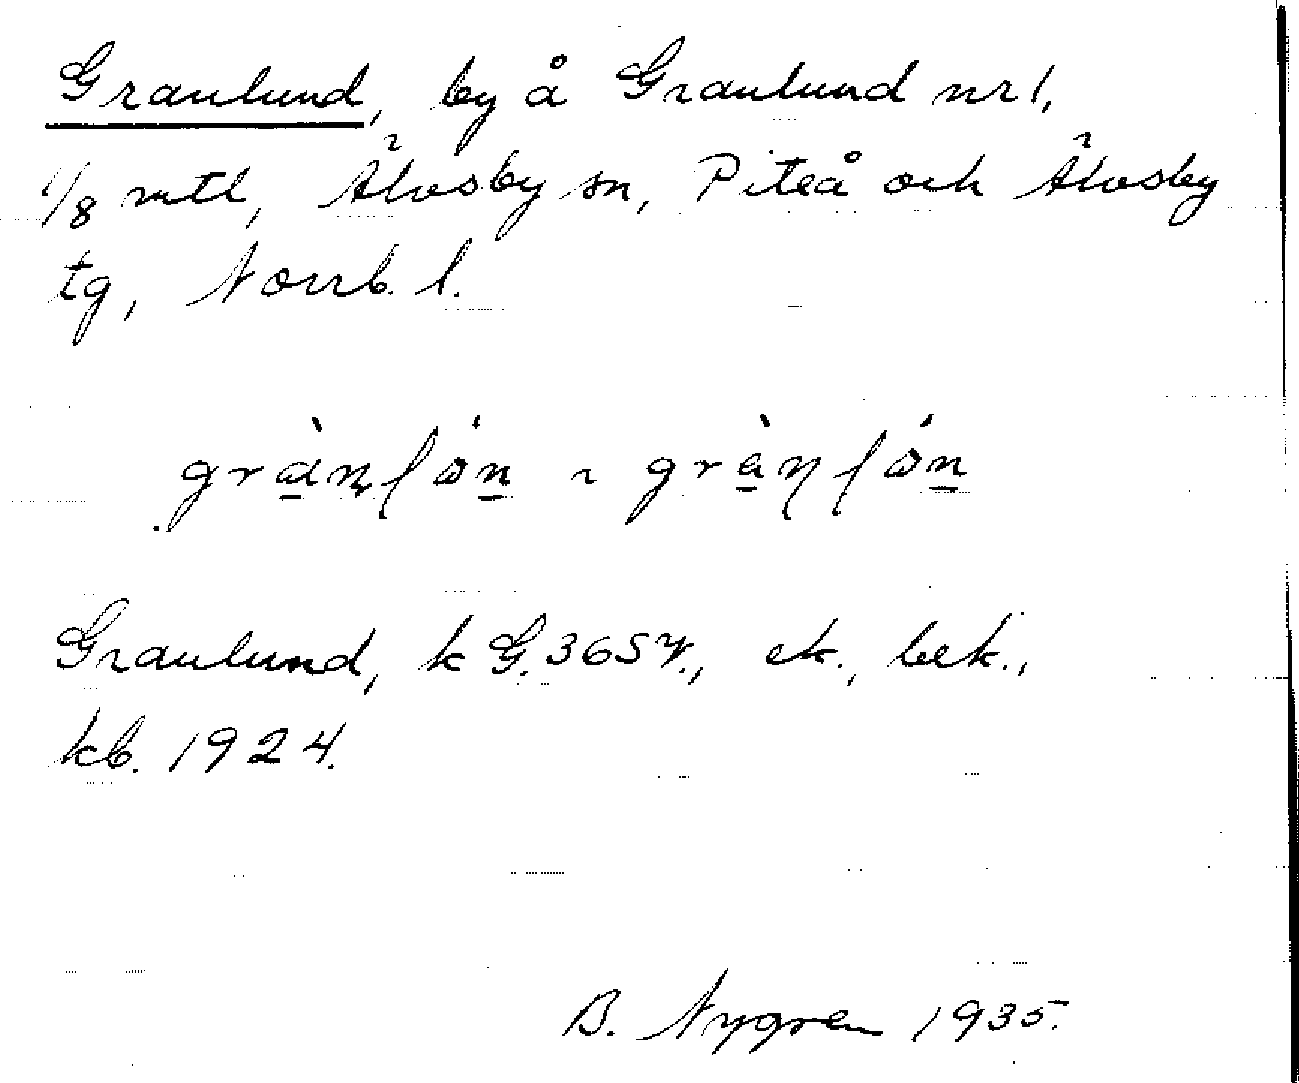 Granlund, by å Granlund nr 1,
1/8 mtl, Älvsby sn, Piteå och Älvsby
tg, Norrb. l.
Granlund, k G. 3657., ek., bek.,
kb. 1924.
B. Nygren 1935.